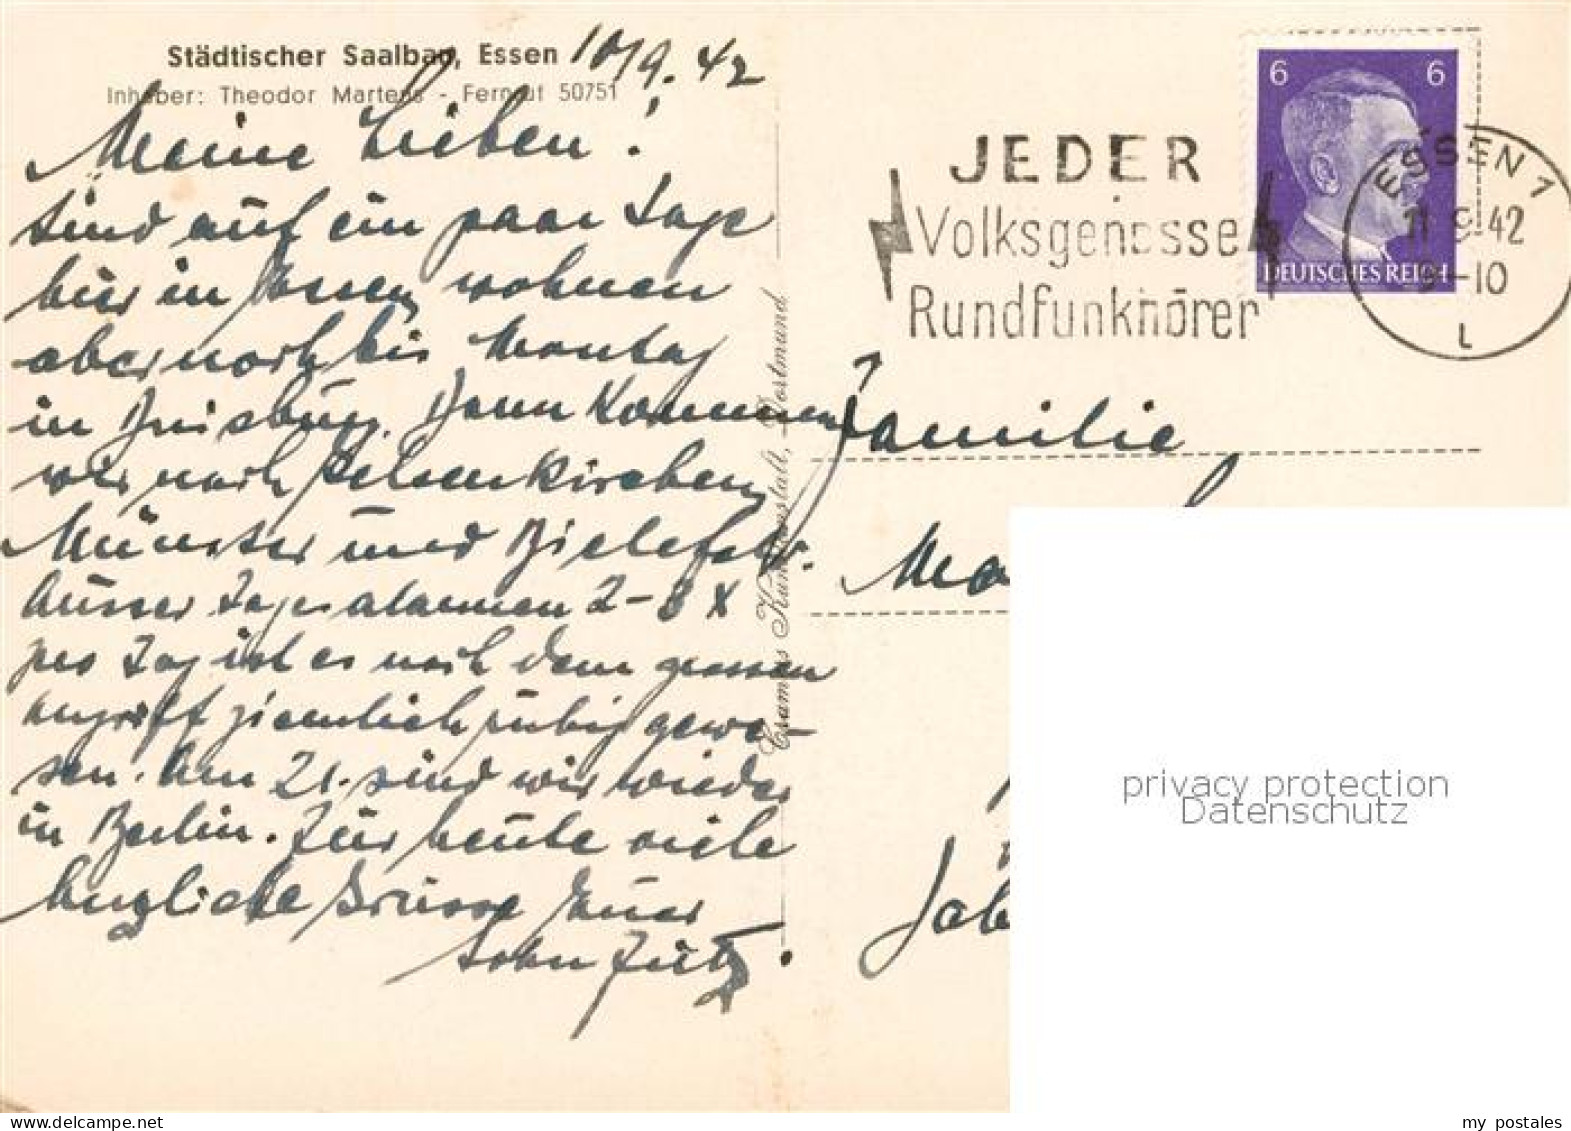 Städtischer Saalbau, Essen 10/9. 42
Inhaber: Theodor Martens - Fernruf 50751
Meine Lieben!
sind auf ein paar Tage
hier in Essen, wohnen
aber noch bis Montag
in Duisburg. Dann kommen
wir nach Gelsenkirchen,
Münster und Bielefeld.
Ausser Tagesalarmen 2-3 X
pro Tag ist es nach dem grossen
Angriff ziemlich ruhig gewe-
sen. Am 21. sind wir wieder
in Berlin. Für heute viele
herzliche Grüsse Euer
Sohn Fritz.
Cramers Kunstanstalt, Dortmund
JEDER
Volksgenosse
Rundfunkhörer
6 6
DEUTSCHES REICH
ESSEN 1
11.9.42
9-10
L
Familie
privacy protection
Datenschutz
my postales